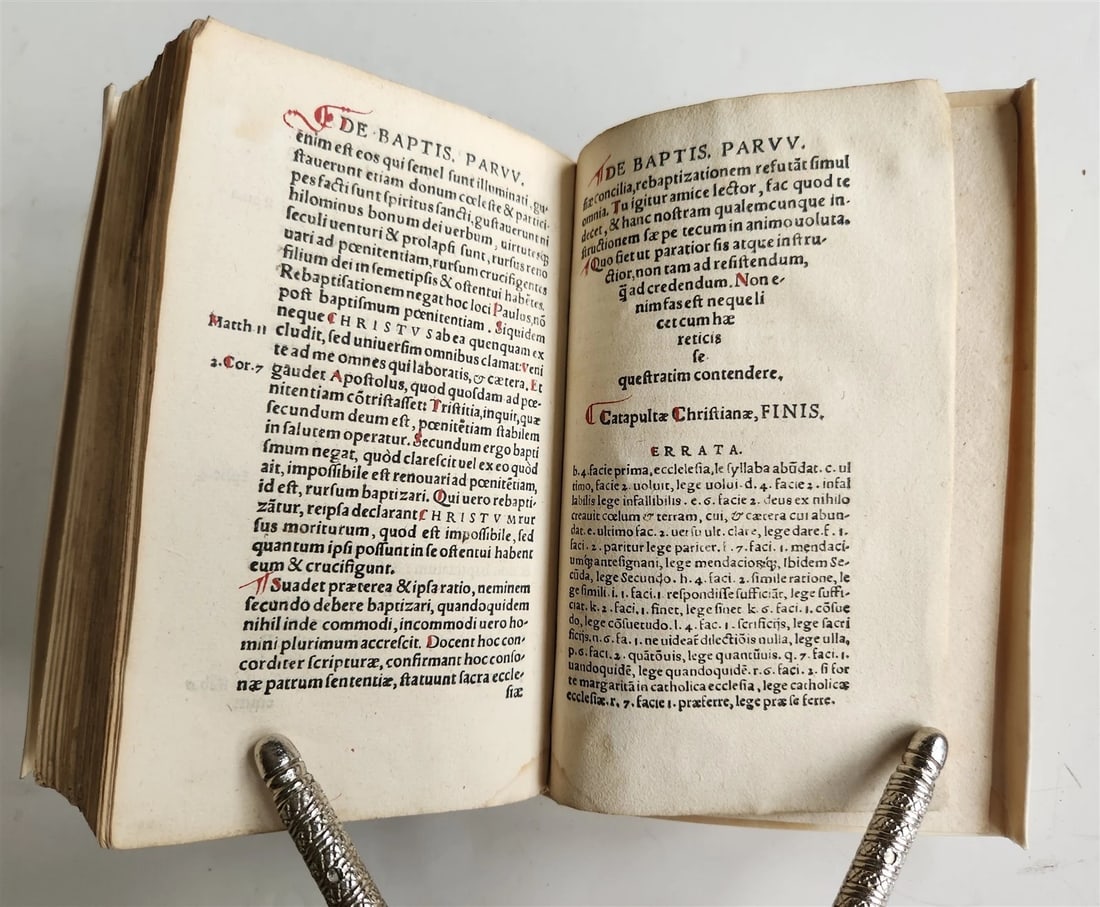 DE BAPTIS. PARVV.
enim est eos qui semel sunt illuminati, gu-
stauerunt etiam donum cœleste & partici-
pes facti sunt spiritus sancti, gustauerunt ni
hilominus bonum dei uerbum, uirtutesqꝫ
seculi uenturi & prolapsi sunt, rursus reno
uari ad pœnitentiam, rursum crucifigentes
filium dei in semetipsis & ostentui habētes.
Rebaptisationem negat hoc loci Paulus, nō
post baptismum pœnitentiam. Siquidem
neque CHRISTVS ab ea quenquam ex
Matth. 11 cludit, sed uniuersim omnibus clamat: Veni
te ad me omnes qui laboratis, & cætera. Et
2. Cor. 7 gaudet Apostolus, quod quosdam ad pœ-
nitentiam cōtristasset: Tristitia, inquit, quæ
secundum deum est, pœnitētiam stabilem
in salutem operatur. Secundum ergo bapti
smum negat, quòd clarescit uel ex eo quòd
ait, impossibile est renouari ad pœnitētiam,
id est, rursum baptizari. Qui uero rebapti-
zātur, reipsa declarant CHRISTVM rur
sus moriturum, quod est impossibile, sed
quantum ipsi possunt in se ostentui habent
eum & crucifigunt.
Suadet præterea & ipsa ratio, neminem
secundo debere baptizari, quandoquidem
nihil inde commodi, incommodi uero ho-
mini plurimum accrescit. Docent hoc con-
corditer scripturæ, confirmant hoc conso-
næ patrum sententiæ, statuunt sacra eccle-
siæ
DE BAPTIS. PARVV.
siæ concilia, rebaptizationem refutāt simul
omnia. Tu igitur amice lector, fac quod te
decet, & hanc nostram qualemcunque in-
structionem sæpe tecum in animo uoluta.
Quo fiet ut paratior sis atque instru-
ctior, non tam ad resistendum,
q̄ ad credendum. Non e-
nim fas est neque li
cet cum hæ
reticis
se-
questratim contendere.
Catapultæ Christianæ, FINIS.
ERRATA.
b. 4. facie prima, ecclelesia, le syllaba abūdat. c. ul
timo, facie 2. uoluit, lege uolui. d. 4. facie 2. infal
labilis lege infallibilis. e. 6. facie 2. deus ex nihilo
creauit cœlum & terram, cui, & cætera cui abun-
dat. e. ultimo fac. 2. uersu ult. clare, lege dare. f. 1.
faci. 2. paritur lege pariter. f. 7. faci. 1. mendaci-
umqꝫ antesignani, lege mendaciorūqꝫ, Ibidem Se-
cūda, lege Secundo. h. 4. faci. 2. simile ratione, le
ge simili. i. 1. faci. 1. respondisse sufficiāt, lege suffi-
ciat. k. 2. faci. 1. finet, lege sinet. k. 6. faci. 1. cōsue
do, lege cōsuetudo. l. 4. fac. 1. scrificijs, lege sacri
ficijs. n. 6. fa. 1. ne uideat dilectiōis nulla, lege ulla,
p. 6. faci. 2. quātōuis, lege quantūuis. q. 7. faci. 1.
uandoquidē, lege quandoquidē. r. 6. faci. 2. si for
te margaritā in catholica ecclesia, lege catholicæ
ecclesiæ. r. 7. facie 1. præferre, lege præ se ferre.